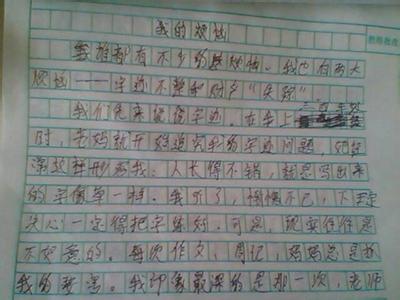 我的烦恼
谁都有不少的烦恼。我也有两大
烦恼——字迹不整和财产“失踪”
我们先来说说字迹。在当上
时,老妈就开始追究我的字迹问题,
深这样形容我:人长得不错,就是写出来
的字像草一样。我听了,惭愧不已,下定
决心一定得把字练好。可是,现实往往是
不如意的。每次作文,周记,妈妈总是
我的字。我印象最深的是那一次,老师